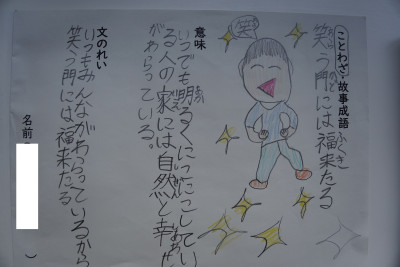 ことわざ・故事成語
笑う門には福来たる
笑
意味
いつでも明るくにこにこしてい
る人の家には自然と幸
がわらっている。
文のれい
いつもみんながわらっているから
笑う門には福来たる
名前